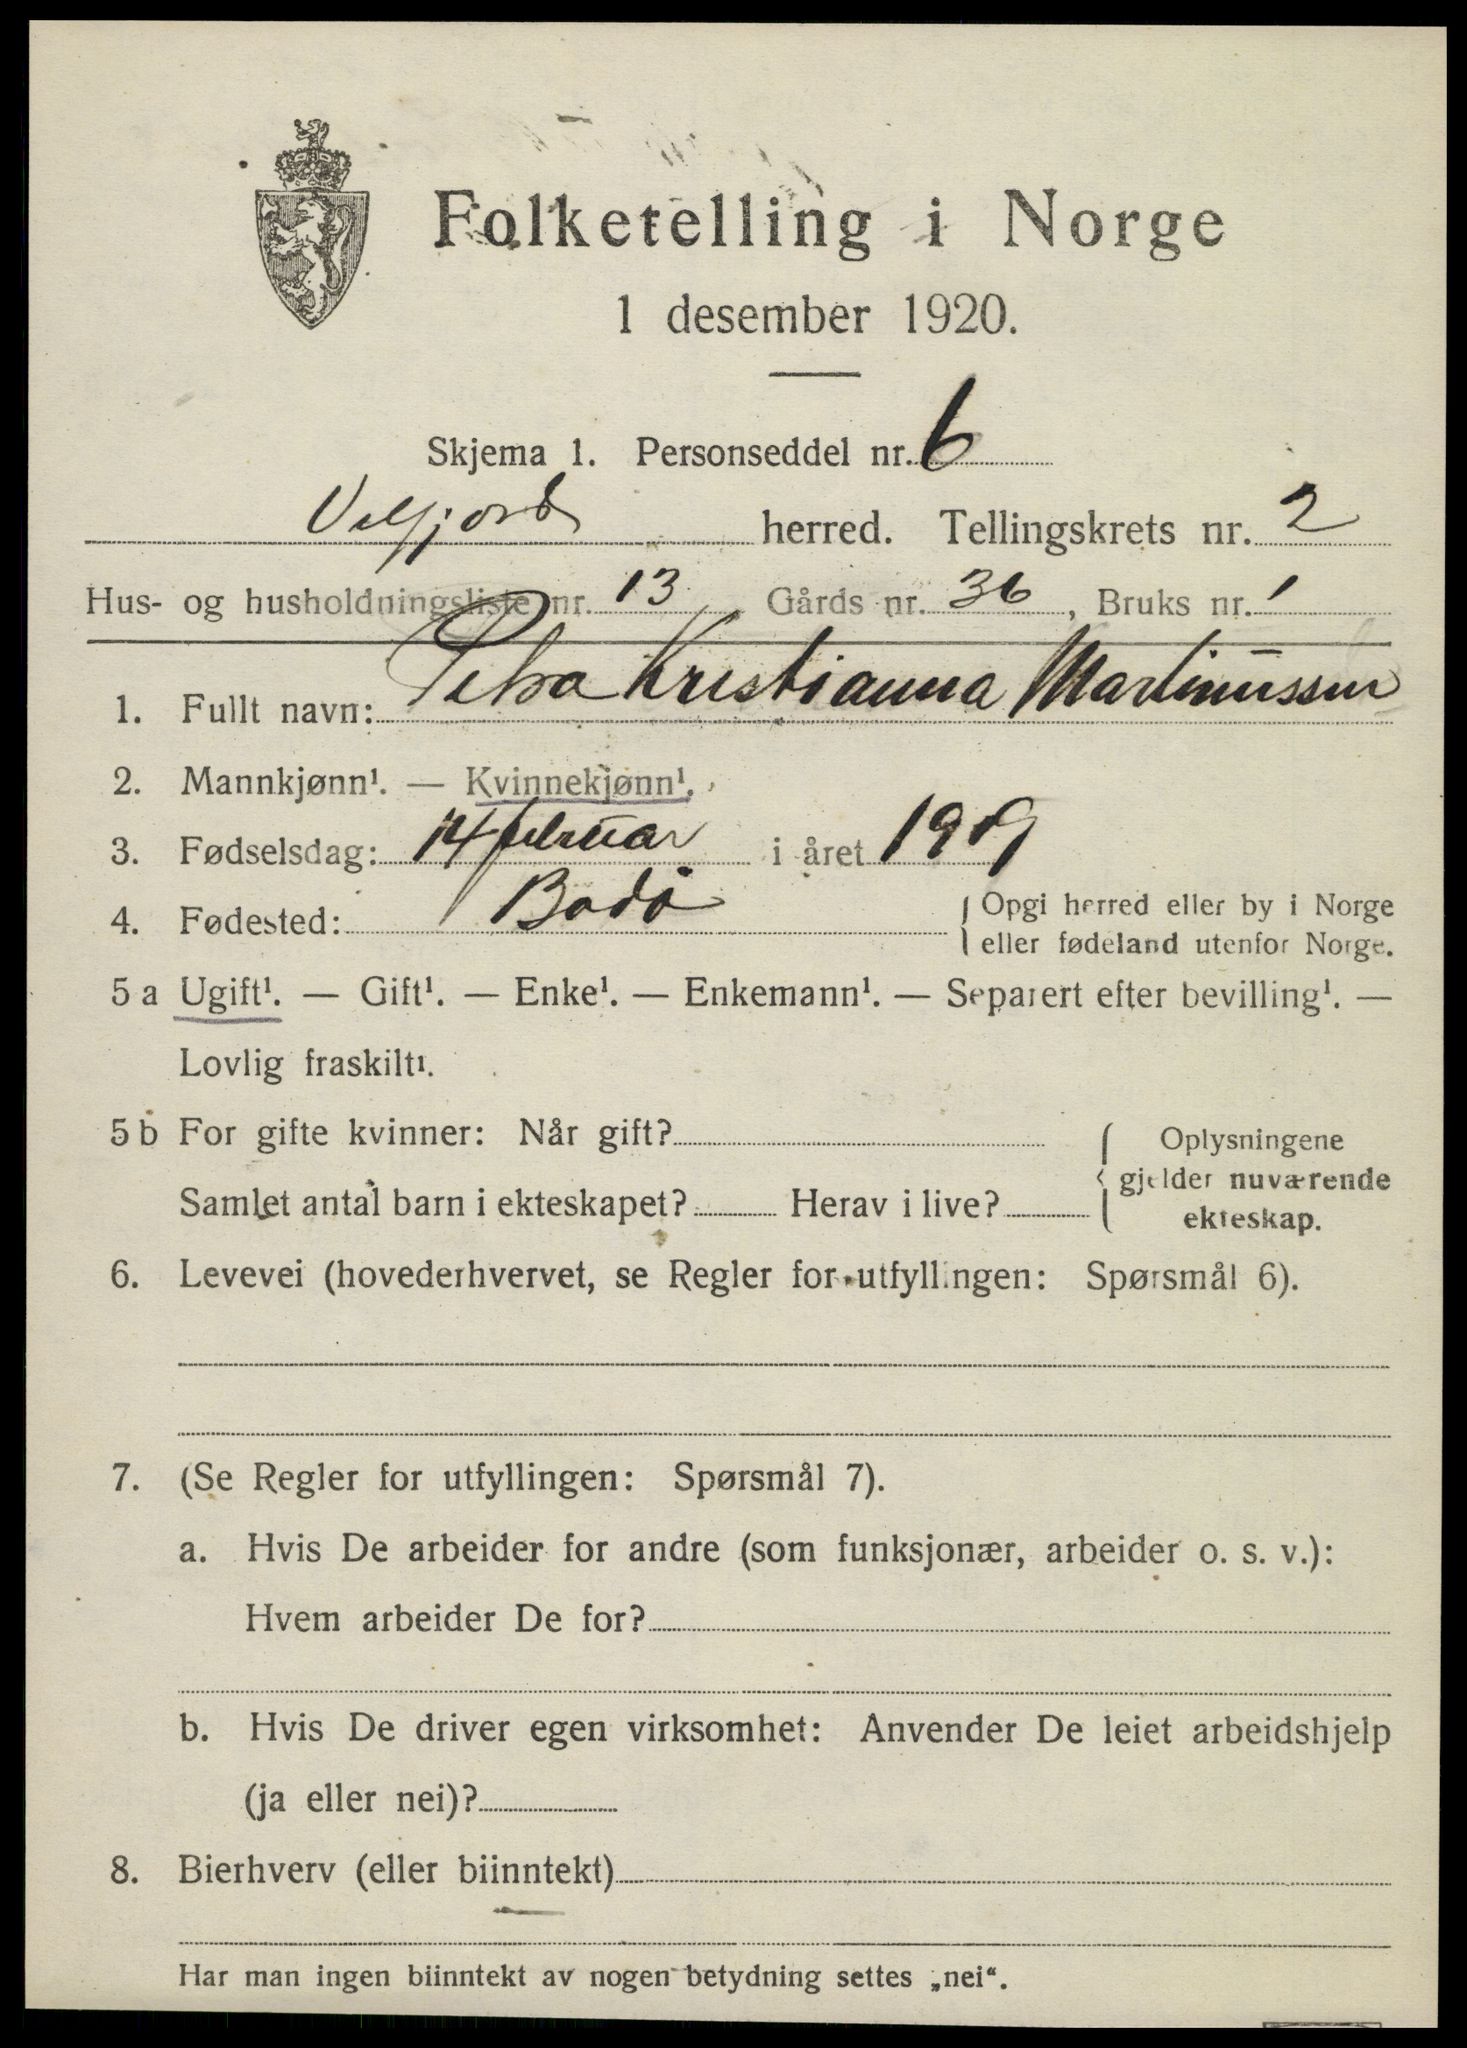 Folketelling i Norge
1 desember 1920.
Skjema 1. Personseddel nr. 6
Velfjord herred. Tellingskrets nr. 2
Hus- og husholdningsliste nr. 13 Gårds nr. 36, Bruks nr. 1
1. Fullt navn: Petra Kristianna Martinussen
2. Mannkjønn¹. — Kvinnekjønn¹.
3. Fødselsdag: 14 februar i året 1919
4. Fødested: Bodø
{ Opgi herred eller by i Norge
eller fødeland utenfor Norge.
5 a Ugift¹. — Gift¹. — Enke¹. — Enkemann¹. — Separert efter bevilling¹. —
Lovlig fraskilt¹.
5 b For gifte kvinner: Når gift?
Samlet antal barn i ekteskapet? Herav i live?
{ Oplysningene
gjelder nuværende
ekteskap.
6. Levevei (hovederhvervet, se Regler for utfyllingen: Spørsmål 6).
7. (Se Regler for utfyllingen: Spørsmål 7).
a. Hvis De arbeider for andre (som funksjonær, arbeider o. s. v.):
Hvem arbeider De for?
b. Hvis De driver egen virksomhet: Anvender De leiet arbeidshjelp
(ja eller nei)?
8. Bierhverv (eller biinntekt)
Har man ingen biinntekt av nogen betydning settes „nei“.